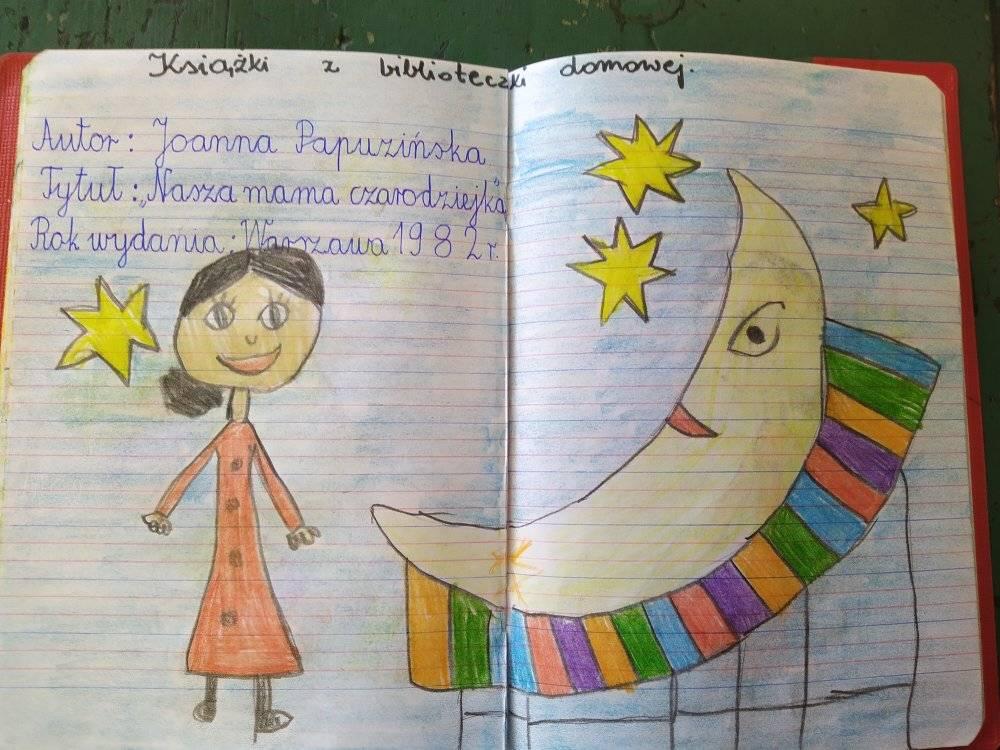 Książki z biblioteczki domowej.
Autor: Joanna Papuzińska
Tytuł: „Nasza mama czarodziejka"
Rok wydania: Warszawa 1982 r.